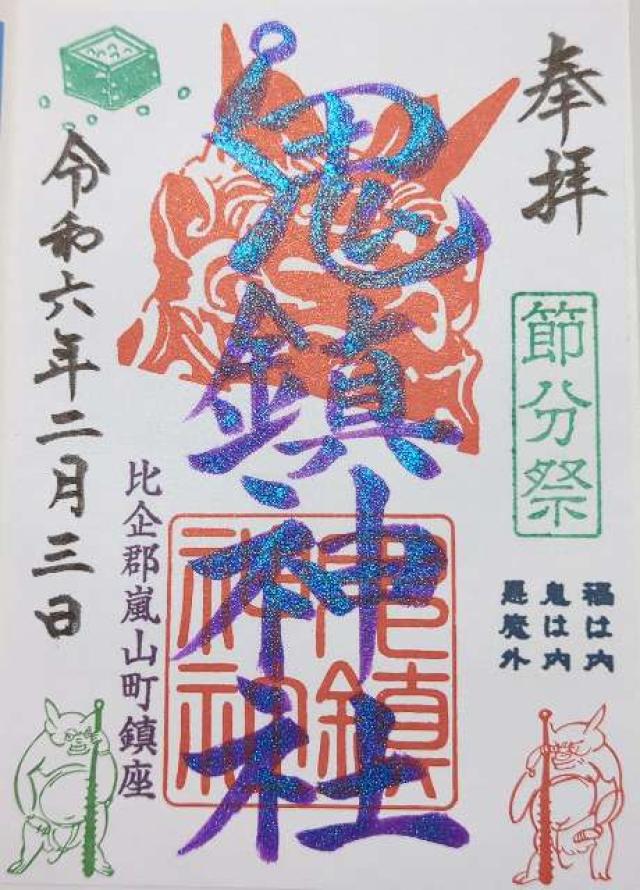 奉拝
節分祭
福は内
鬼は内
悪魔外
鬼鎮神社
鬼鎮神社
比企郡嵐山町鎮座
令和六年二月三日